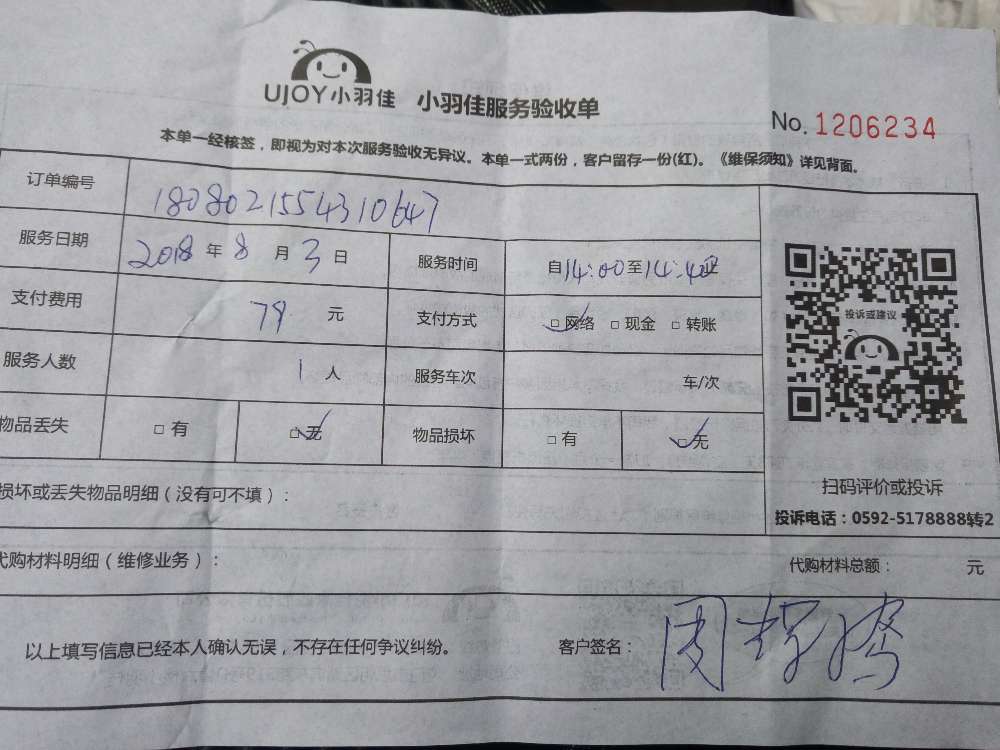 UJOY小羽佳 小羽佳服务验收单
No. 1206234
本单一经核签，即视为对本次服务验收无异议。本单一式两份，客户留存一份(红)。《维保须知》详见背面。
订单编号 1808021554310647
服务日期 2018 年 8 月 3 日 服务时间 自14:00至14:40
支付费用 79 元 支付方式 □网络 □现金 □转账
投诉或建议
服务人数 1 人 服务车次 车/次
物品丢失 □有 □无 物品损坏 □有 □无
扫码评价或投诉
损坏或丢失物品明细（没有可不填）：
投诉电话：0592-5178888转2
代购材料明细（维修业务）： 代购材料总额： 元
以上填写信息已经本人确认无误，不存在任何争议纠纷。 客户签名：周